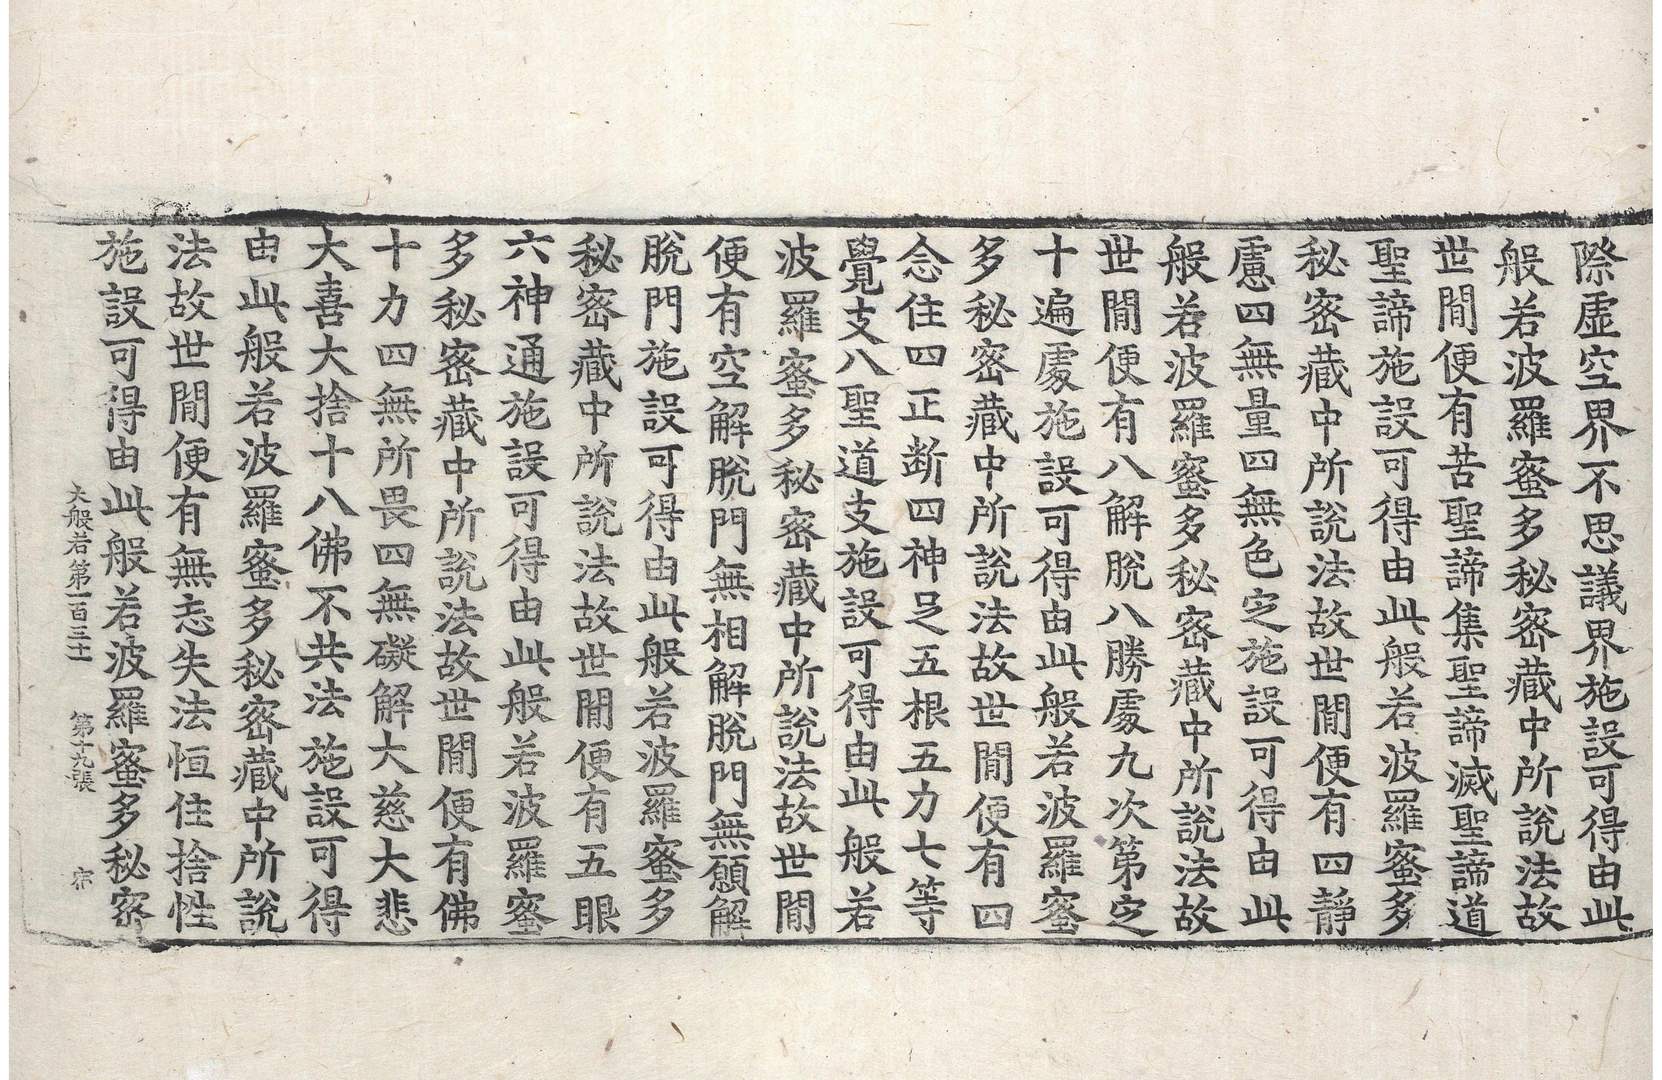 際虛空界不思議界施設可得由此
般若波羅蜜多秘密藏中所說法故
世間便有苦聖諦集聖諦滅聖諦道
聖諦施設可得由此般若波羅蜜多
秘密藏中所說法故世間便有四靜
慮四無量四無色定施設可得由此
般若波羅蜜多秘密藏中所說法故
世間便有八解脫八勝處九次第定
十遍處施設可得由此般若波羅蜜
多秘密藏中所說法故世間便有四
念住四正斷四神足五根五力七等
覺支八聖道支施設可得由此般若
波羅蜜多秘密藏中所說法故世間
便有空解脫門無相解脫門無願解
脫門施設可得由此般若波羅蜜多
秘密藏中所說法故世間便有五眼
六神通施設可得由此般若波羅蜜
多秘密藏中所說法故世間便有佛
十力四無所畏四無礙解大慈大悲
大喜大捨十八佛不共法施設可得
由此般若波羅蜜多秘密藏中所說
法故世間便有無忘失法恒住捨性
施設可得由此般若波羅蜜多秘密
大般若第一百三十一 第十九張